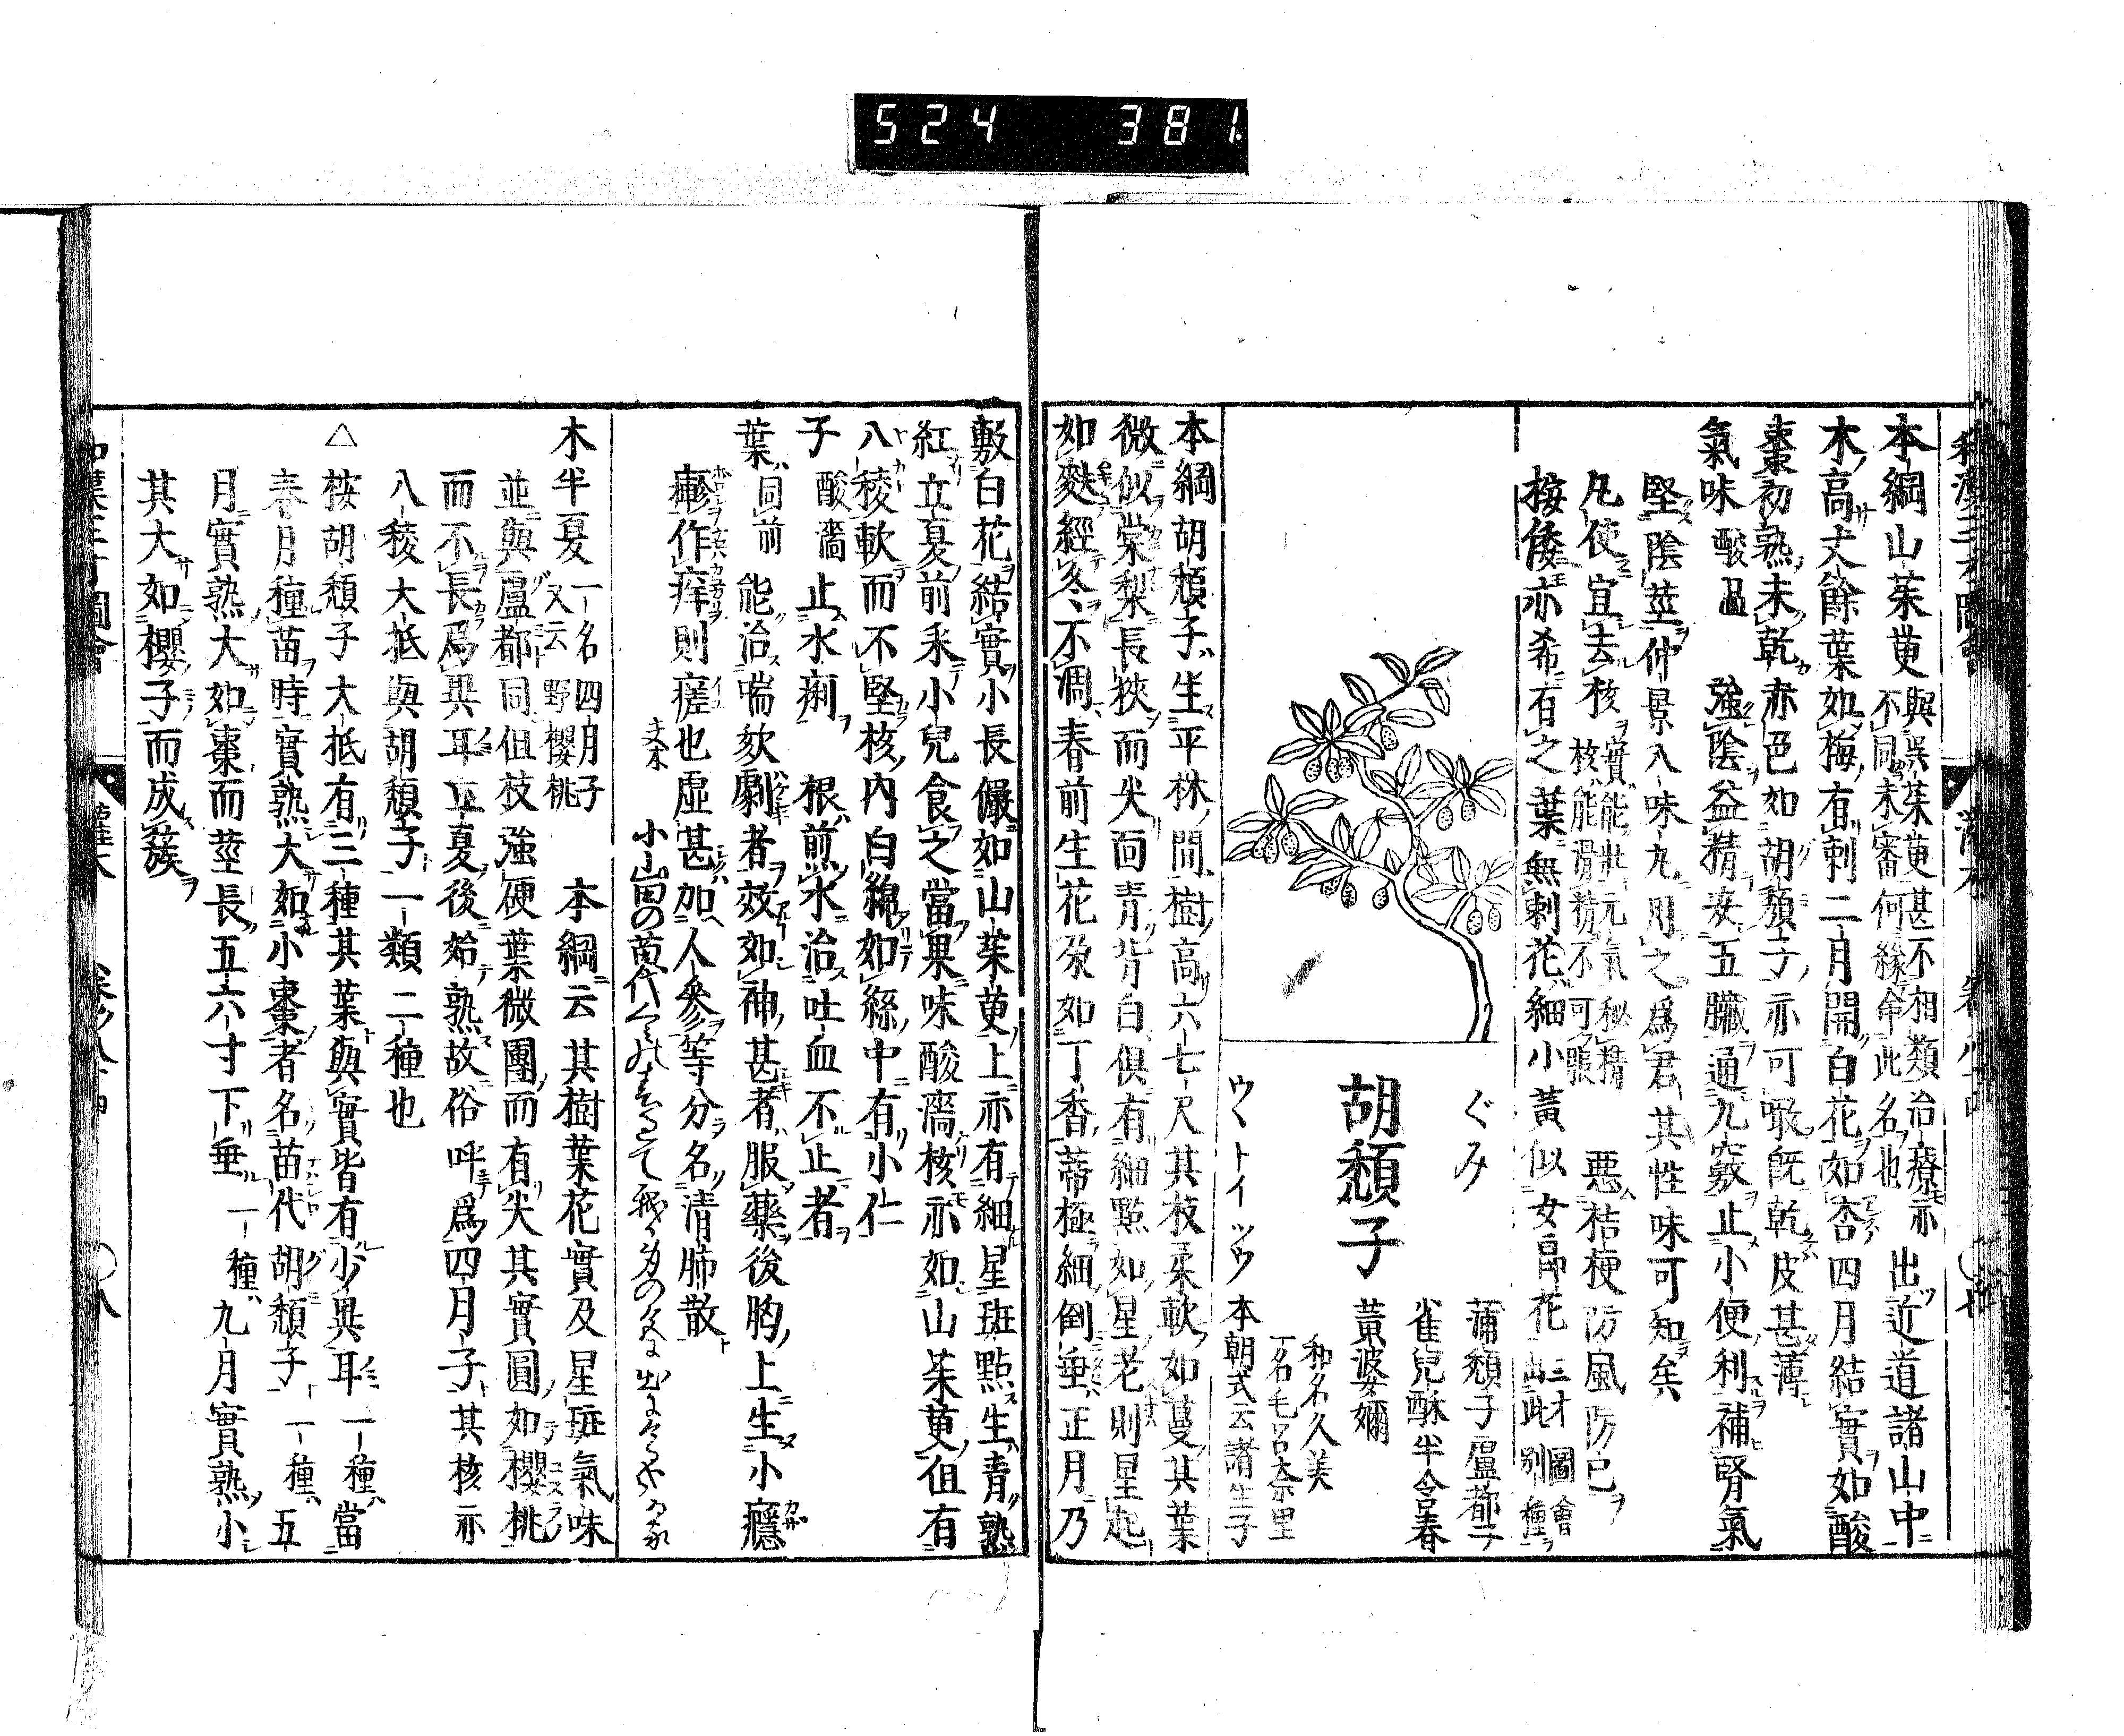 524 381
本綱山茱萸 與呉茱萸甚不相類治療亦不同未審何緣命此名也 出近道諸山中
木高丈餘葉如梅有刺二月開白花如杏四月結實如酸
棗初熟未乾赤色如胡頽子亦可噉既乾皮甚薄
氣味 酸温 強陰益精安五臟通九竅止小便利補腎氣
堅陰莖仲景八味丸用之爲君其性味可知矣
凡使宜去核 實能壯元氣秘精核能滑精不可服 悪桔梗防風防已
按倭亦希有之葉無刺花細小黃似女郎花 三才圖會出此別種
ぐみ
胡頽子
ウヽトイツウ
蒲頽子 盧都子
雀兒酥 半含春
黃婆嬭
和名久美
一名毛呂奈里
本朝式云諸生子
本綱胡頽子生平林間樹高六七尺其枝柔軟如蔓其葉
微似棠梨長狹而尖面青背白俱有細點如星老則星起
如麩經冬不凋春前生花朶如丁香蒂極細倒垂正月乃
敷白花結實小長儼如山茱萸上亦有細星斑點生青熟
紅立夏前采小兒食之當果味酸濇核亦如山茱萸但有
八稜軟而不堅核內白綿如絲中有小仁
子 酸濇 止水痢 根 煎水治吐血不止者
葉 同前 能治喘欬劇者效如神甚者服藥後胸上生小癮
疹作痒則瘥也虛甚加人參等分名清肺散
夫木 小山田の苗代
木半夏 一名四月子又云野櫻桃 本綱云其樹葉花實及星斑氣味
並與盧都同但枝強硬葉微團而有尖其實圓如櫻桃
而不長爲異耳立夏後始熟故俗呼爲四月子其核亦
八稜大抵與胡頽子一類二種也
△按胡頽子大抵有三種其葉與實皆有少異耳一種當
春月種苗時實熟大如小棗者名苗代胡頽子一種五
月實熟大如棗而莖長五六寸下垂一種九月實熟小
其大如櫻子而成簇